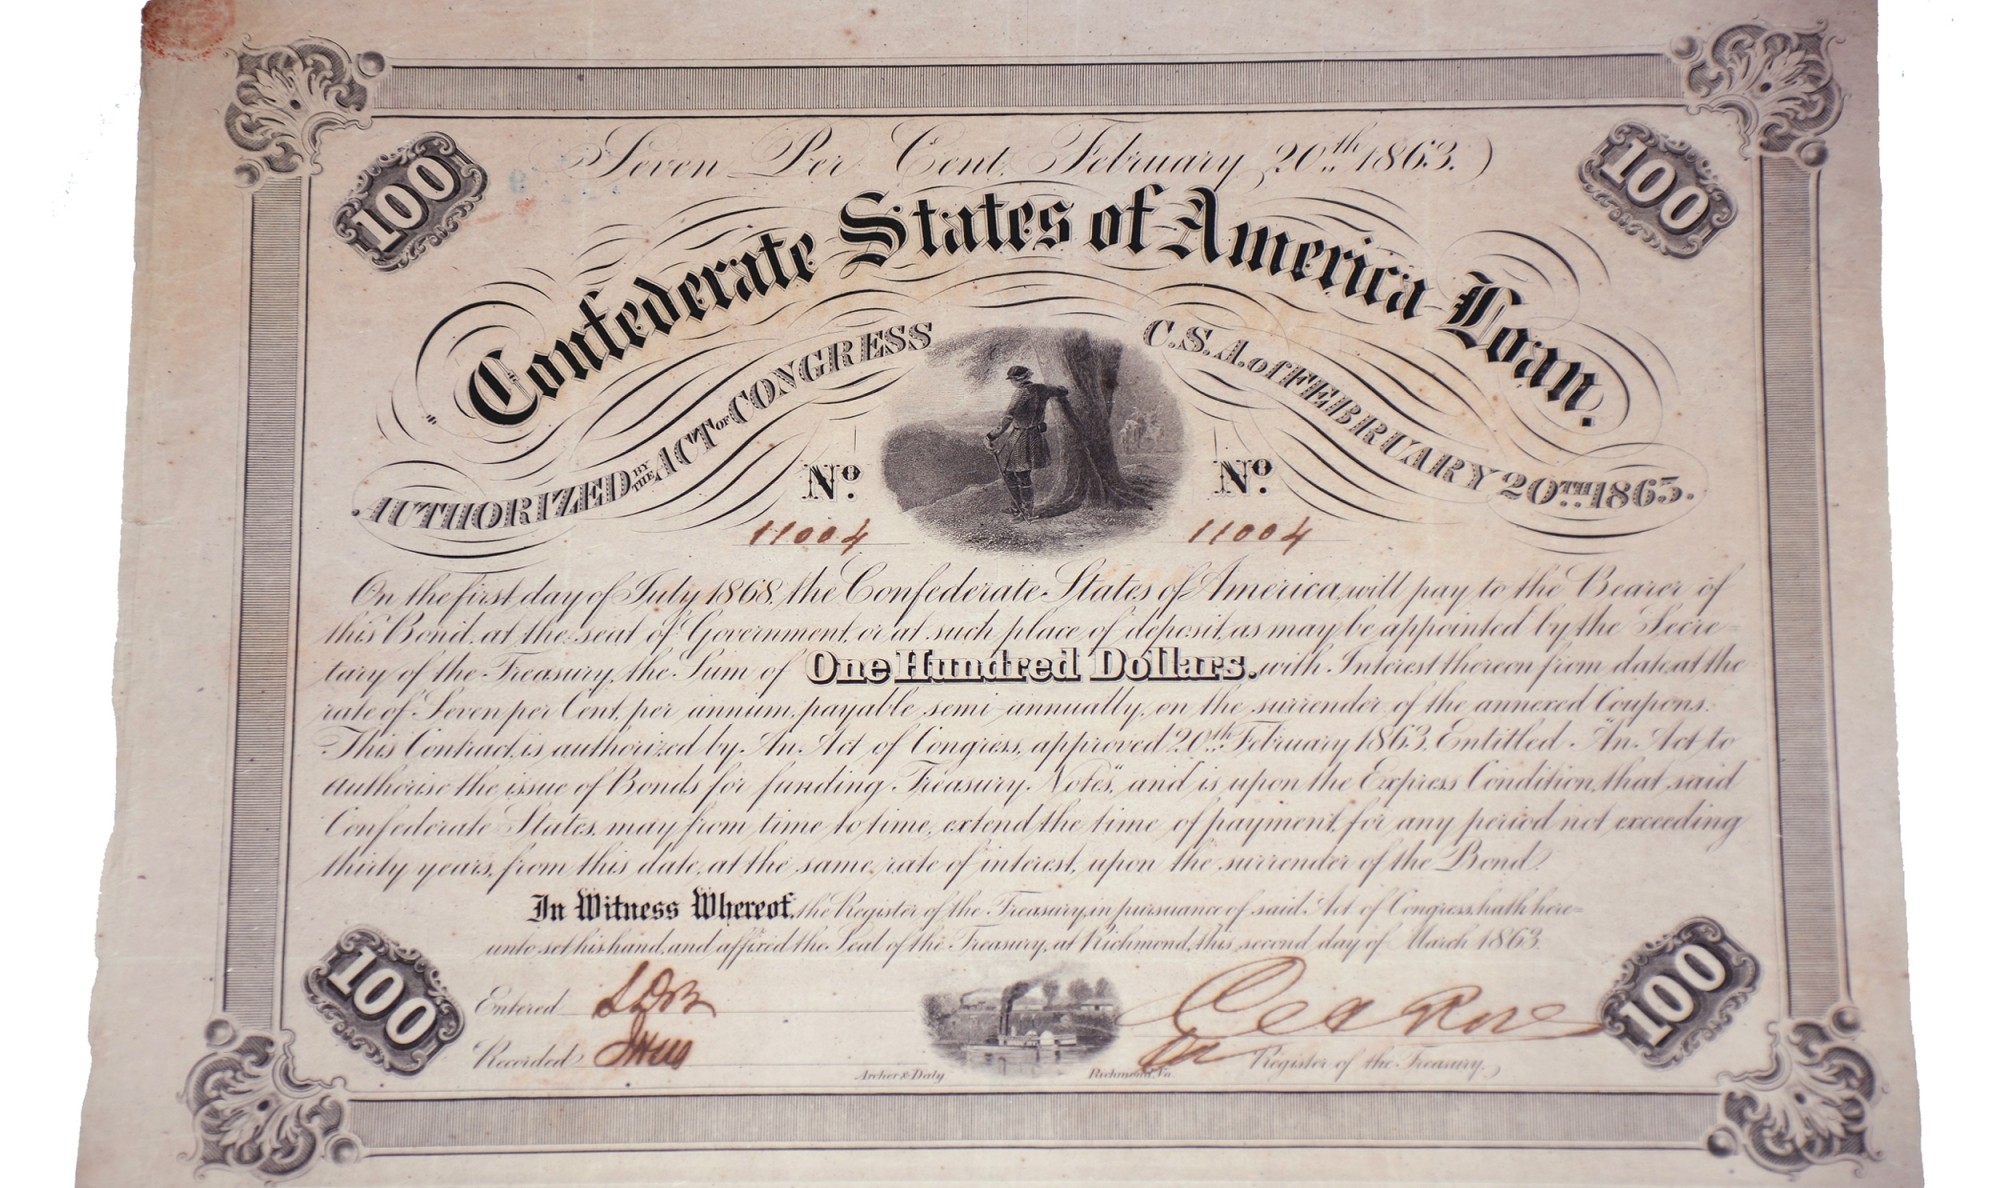 100
Seven Per Cent. February 20th 1863.
100
Confederate States of America Loan.
AUTHORIZED BY THE ACT OF CONGRESS C.S.A. of FEBRUARY 20TH 1863.
No. No.
11004 11004
On the first day of July 1868, the Confederate States of America, will pay to the Bearer of
this Bond, at the seat of Government, or at such place of deposit, as may be appointed by the Secre=
tary of the Treasury, the Sum of One Hundred Dollars. with Interest thereon from date, at the
rate of Seven per Cent, per annum, payable semi-annually, on the surrender of the annexed Coupons.
This Contract, is authorized by An Act of Congress, approved 20th February 1863, Entitled "An Act, to
authorise the issue of Bonds for funding Treasury Notes," and is upon the Express Condition, that said
Confederate States, may from time to time, extend the time of payment, for any period not exceeding
thirty years, from this date, at the same rate of interest, upon the surrender of the Bond.
In Witness Whereof, the Register of the Treasury, in pursuance of said Act of Congress, hath here=
unto set his hand, and affixed the Seal of the Treasury, at Richmond, this second day of March 1863.
100
100
Entered
Recorded
Register of the Treasury.
Archer & Daly Richmond, Va.